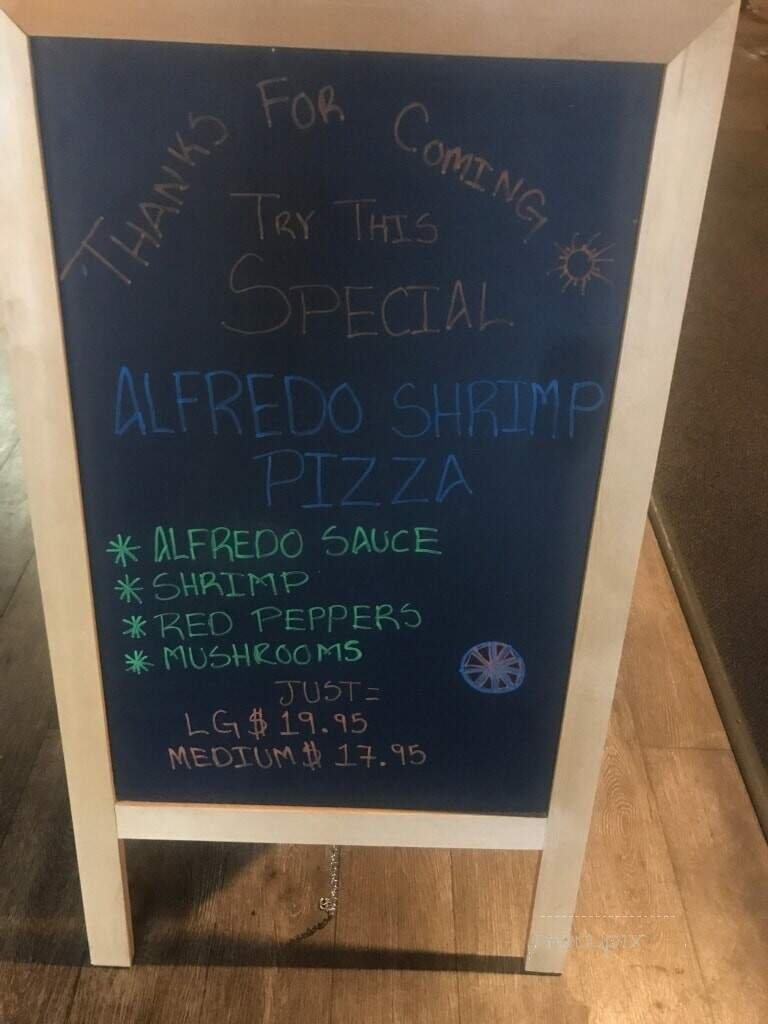 THANKS FOR COMING
TRY THIS
SPECIAL
ALFREDO SHRIMP
PIZZA
* ALFREDO SAUCE
* SHRIMP
* RED PEPPERS
* MUSHROOMS
JUST=
LG $ 19.95
MEDIUM $ 17.95